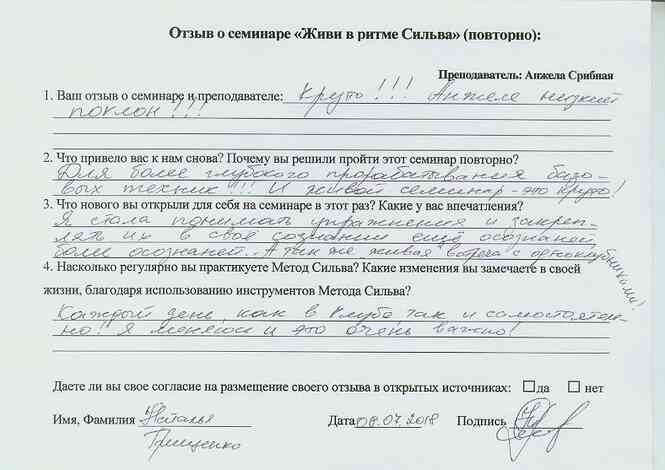 Отзыв о семинаре «Живи в ритме Сильва» (повторно):
Преподаватель: Анжела Срибная
1. Ваш отзыв о семинаре и преподавателе: Круто!!! Анжеле низкий
поклон!!!
2. Что привело вас к нам снова? Почему вы решили пройти этот семинар повторно?
Для более глубокого прорабатывания базо-
вых техник!!! И живой семинар - это круто!
3. Что нового вы открыли для себя на семинаре в этот раз? Какие у вас впечатления?
Я стала понимать упражнения и закреп-
лять их в своё сознании ещё осознаней,
более осознаней. А так же живая встреча с одноклубниками!
4. Насколько регулярно вы практикуете Метод Сильва? Какие изменения вы замечаете в своей
жизни, благодаря использованию инструментов Метода Сильва?
Каждый день, как в Клубе так и самостоятель-
но! Я меняюсь и это очень важно!
Даете ли вы свое согласие на размещение своего отзыва в открытых источниках: да нет
Имя, Фамилия Наталья Дата 08.07.2018 Подпись
Грищенко